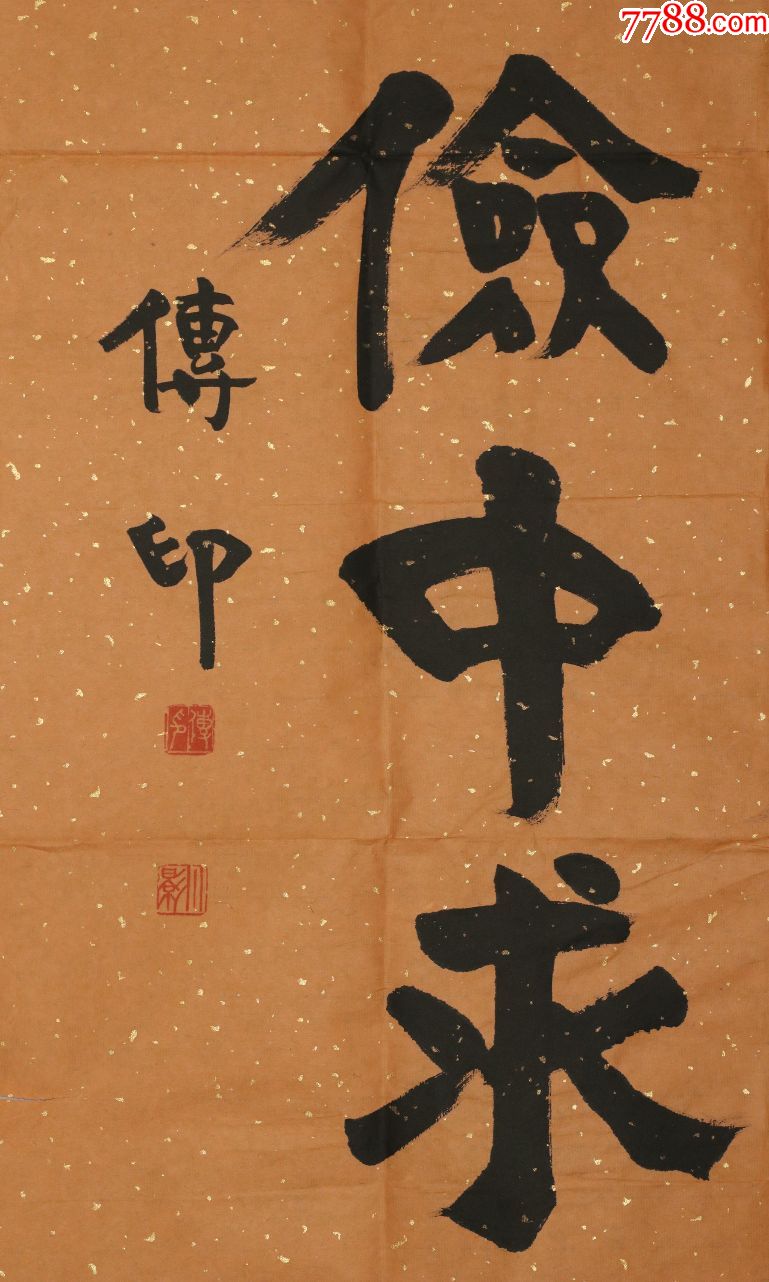 7788.com
儉中求
傳印
傳印